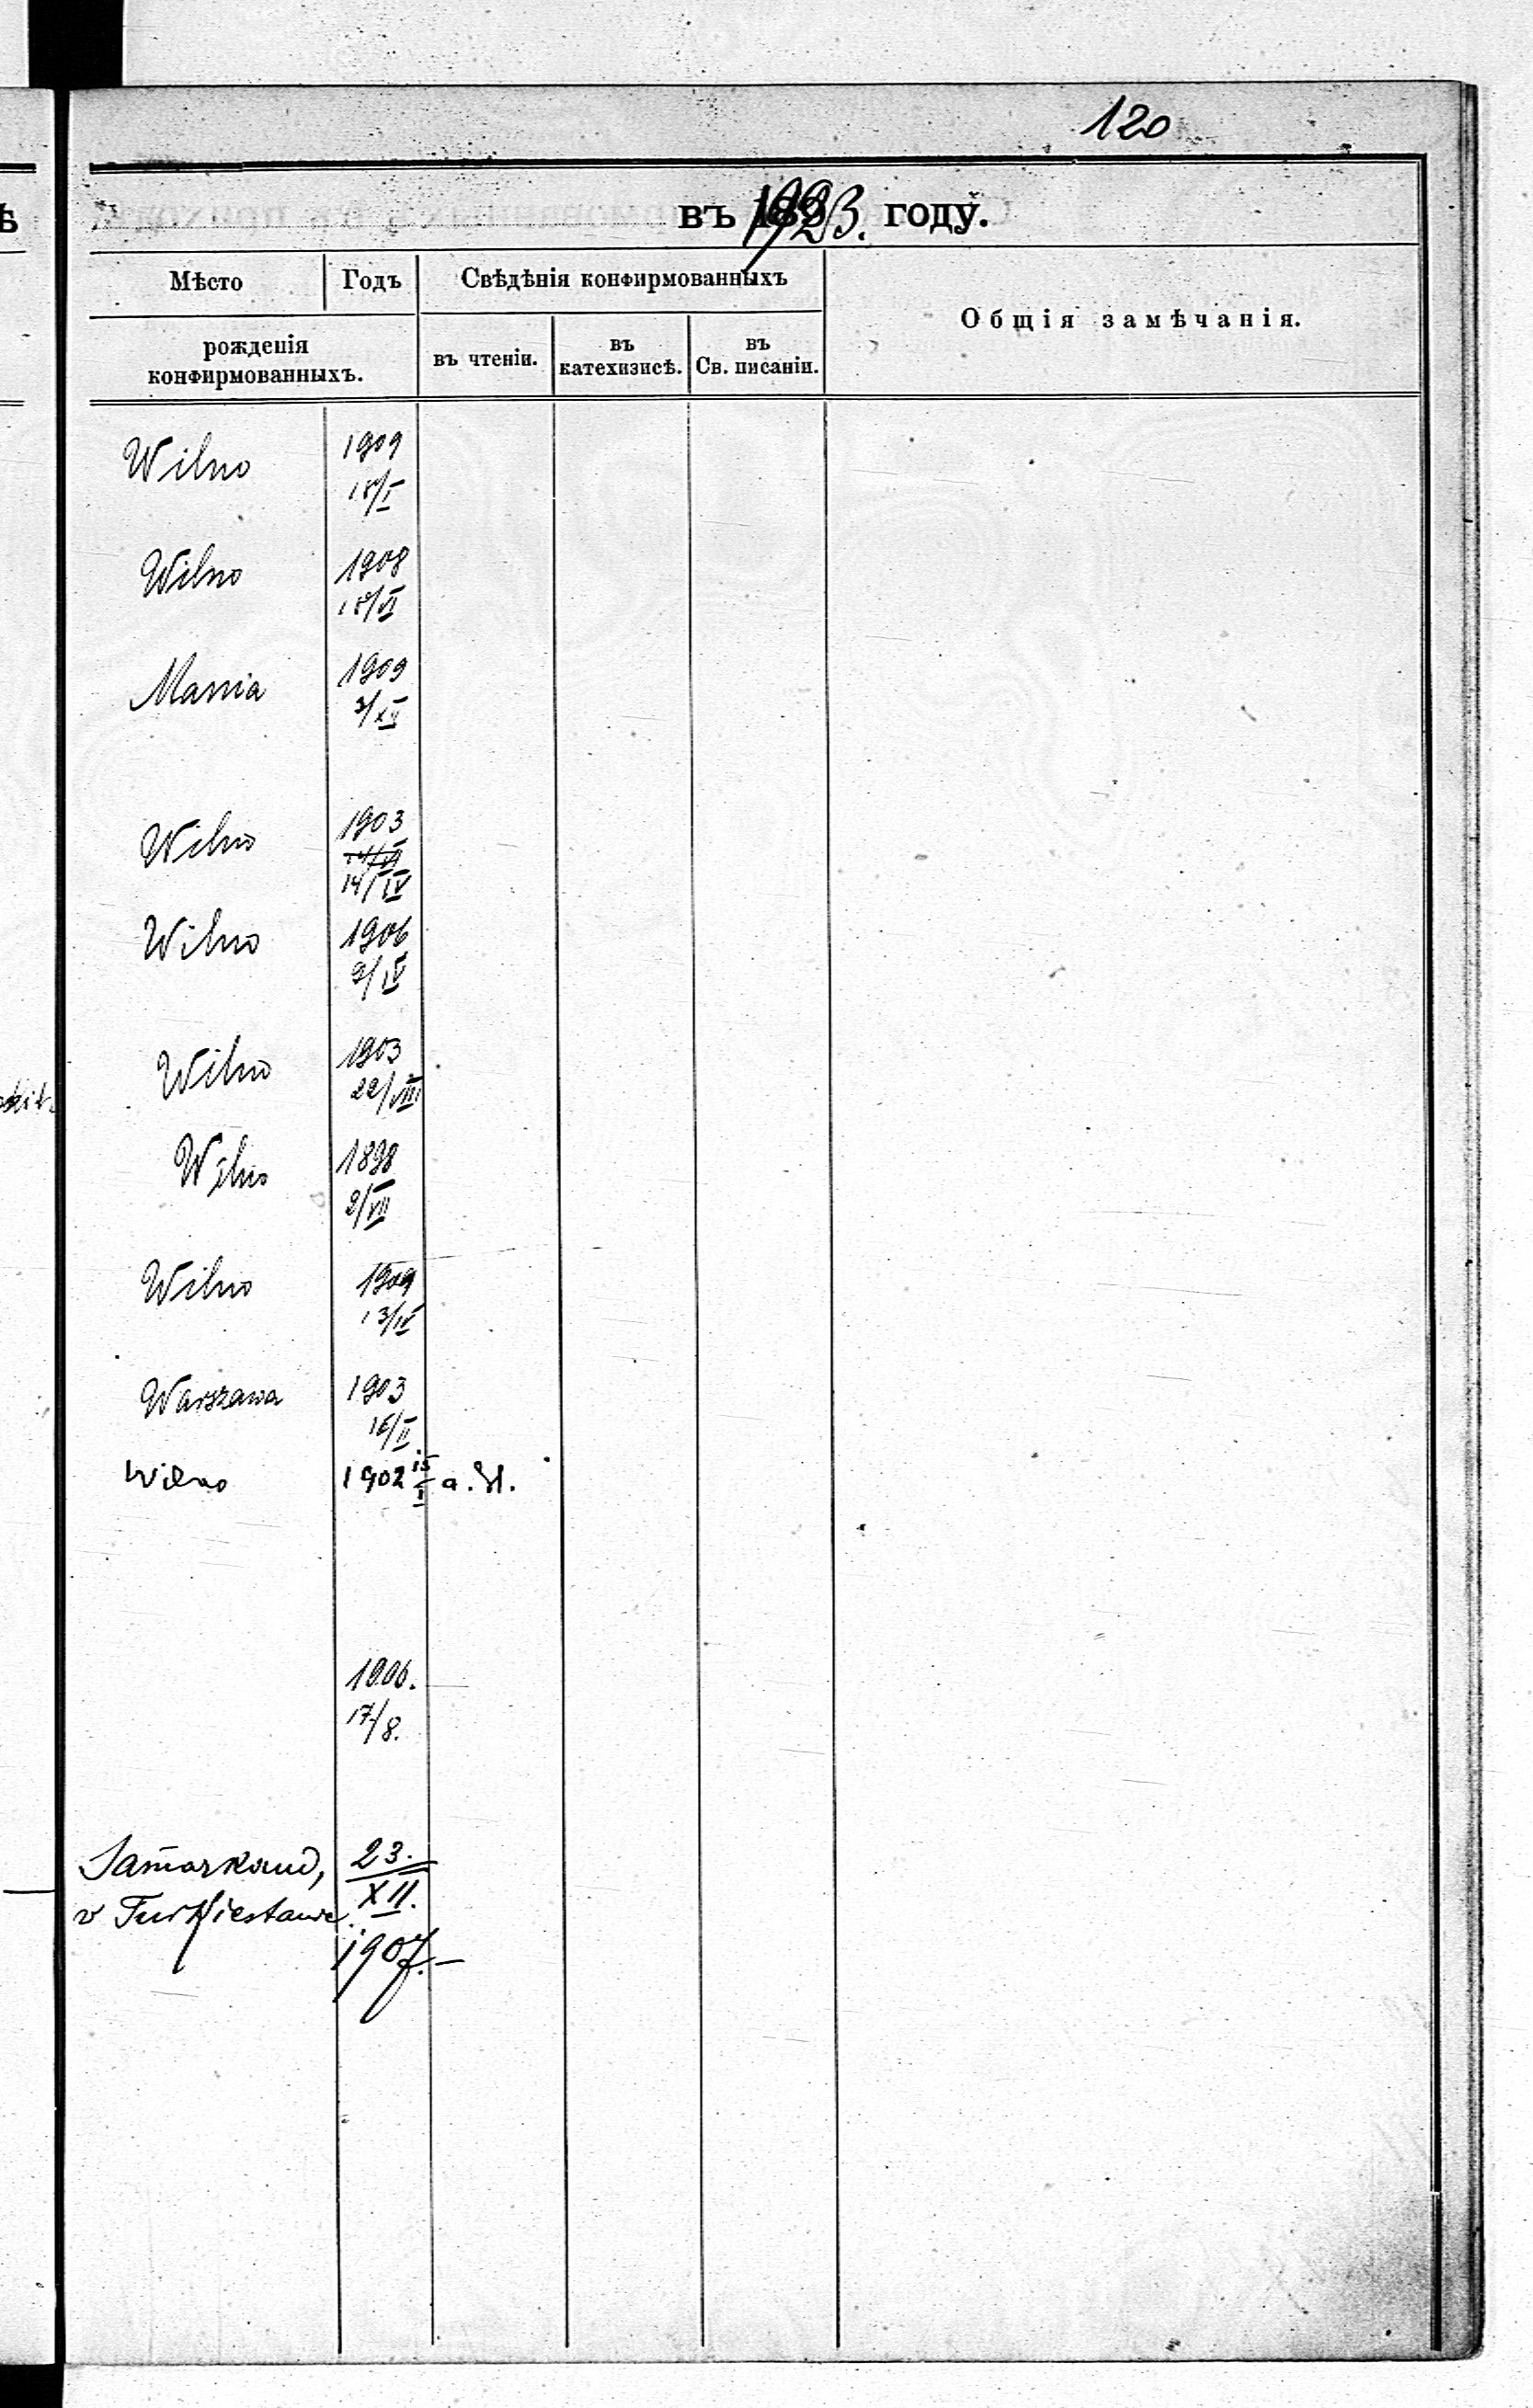 120
въ 1923. году.
Мѣсто Годъ Свѣдѣнія конфирмованныхъ
Общія замѣчанія.
рожденія
конфирмованныхъ.
въ чтеніи.
въ
катехизисѣ.
въ
Св. писаніи.
Wilno 1909
18/I
Wilno 1908
18/VI
1909
3/XII
Wilno 1903
14/VI
14/IV
Wilno 1906
9/IV
Wilno 1903
22/VIII
Wilno 1898
2/VII
Wilno 1909
13/IV
Warszawa 1903
16/II
Wilno 1902 15/I a. St.
1906.
17/8.
Samarkand, 23.
v Turkiestanie. XII.
1907.–